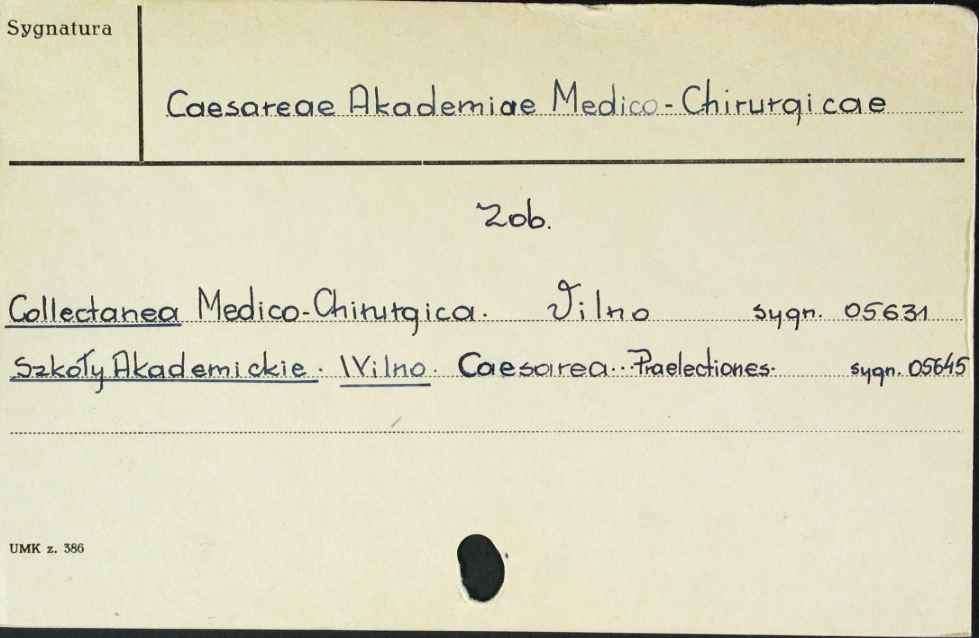 Sygnatura
Caesareae Akademiae Medico-Chirurgicae
Zob.
Collectanea Medico-Chirurgica. Vilno sygn. 05631
Szkoły Akademickie. Wilno. Caesarea...Praelectiones. sygn. 05645
UMK z. 386